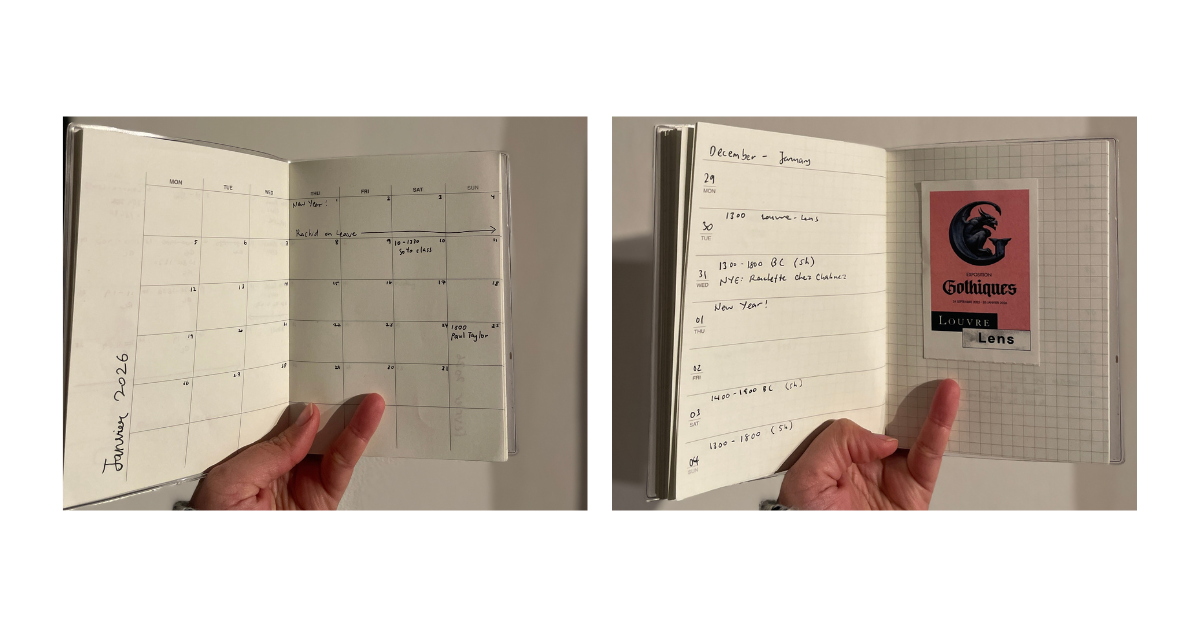 Janvier 2026
MON TUE WED THU FRI SAT SUN
New Year! 1 2 3 4
Rachid on Leave
5 6 7 8 9 10 11
10-1330
12 13 14 15 16 17 18
19 20 21 22 23 24 25
1500
Paul Taylor
28 29 30 31
December - January
29
MON
30
TUE
1300 Louvre-Lens
31
WED
1300-1800 BC (5h)
NYE: Raclette Chez Chahnez
01
THU
New Year!
02
FRI
03
SAT
1400-1900 BC (5h)
04
SUN
1300-1800 (5h)
EXPOSITION
Gothiques
LOUVRE
Lens